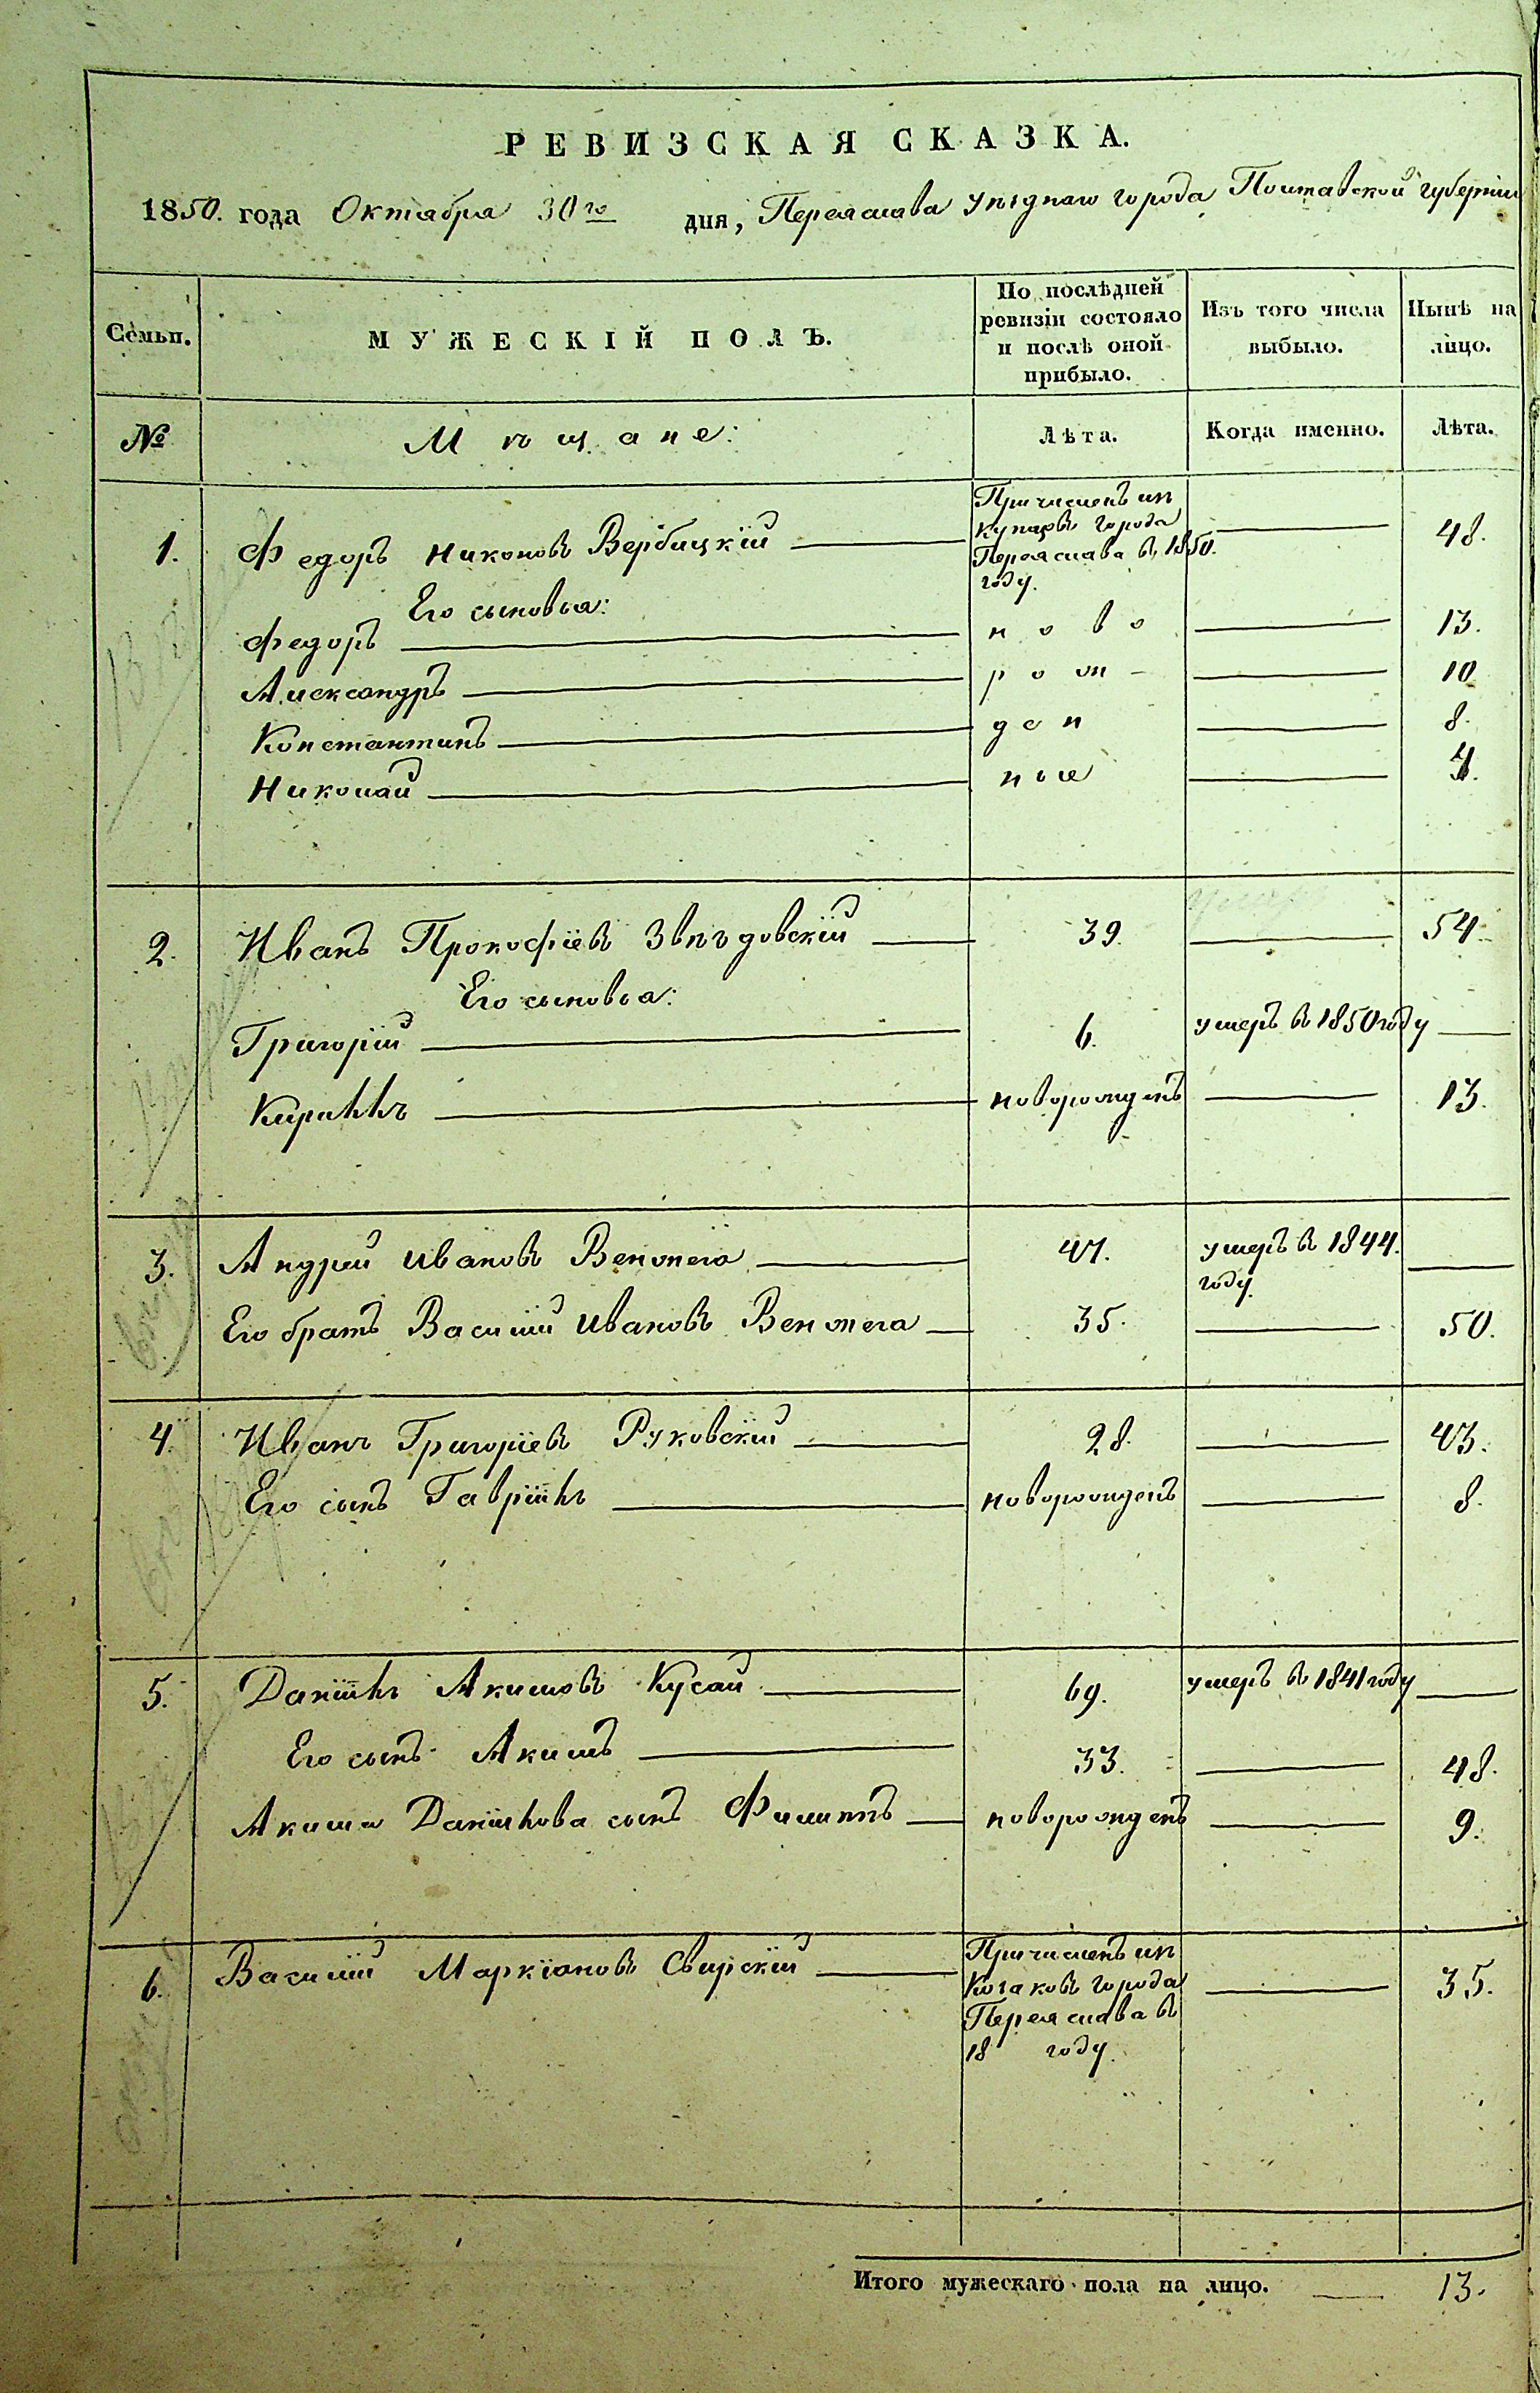 РЕВИЗСКАЯ СКАЗКА.
1850. года Октября 30го дня, Переяслава уѣзднаго города Полтавской губерніи
Семьи.
МУЖЕСКІЙ ПОЛЪ.
По послѣдней ревизіи состояло и послѣ оной прибыло.
Изъ того числа выбыло.
Нынѣ на лицо.
№
Мѣщане:
Лѣта.
Когда именно.
Лѣта.
1. Федоръ Никоновъ Вербицкій
Причисленъ изъ
купцовъ города
Переяслава въ 1850.
году.
48.
Его сыновья:
Федоръ ново 13.
Александръ рож- 10
Константинъ ден 8.
Николай ные 4.
2. Иванъ Прокофіевъ Звѣздовскій 39. 54.
умеръ
Его сыновья:
Григорій 6. умеръ въ 1850 году
Кириллъ новорожденъ 13.
3. Андрей Ивановъ Венжега 47. умеръ въ 1844.
году.
Его братъ Василій Ивановъ Венжега 35. 50.
4. Иванъ Григоріевъ Руковскій 28. 43.
Его сынъ Гавріилъ новорожденъ 8.
5. Даніилъ Акимовъ Кусай 69. умеръ въ 1841 году
Его сынъ Акимъ 33. 48.
Акима Даніилова сынъ Филиппъ новорожденъ 9.
6. Василій Маркіановъ Свирскій
Причисленъ изъ
Козаковъ города
Переяслава въ
18 году.
35.
Итого мужескаго пола на лицо. 13.